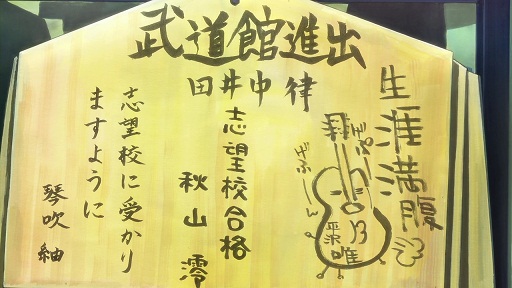 武道館進出
田井中律
生涯満腹
げぷ
げふーん
平沢唯
志望校合格
秋山澪
志望校に受かり
ますように
琴吹紬